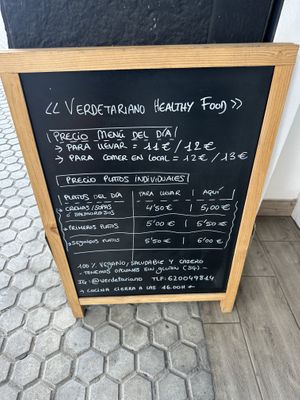 << VERDETARIANO HEALTHY FOOD >>
PRECIO MENÚ DEL DÍA
→ PARA LLEVAR = 11€ / 12€
→ PARA COMER EN LOCAL = 12€ / 13€
PRECIO PLATOS INDIVIDUALES
PLATOS DEL DÍA PARA LLEVAR AQUÍ
*CREMAS/SOPAS 4'50€ 5,00€
Ó SALMOREJOS
*PRIMEROS PLATOS 5'00€ 5'50€
*SEGUNDOS PLATOS 5'50€ 6'00€
100% VEGANO, SALUDABLE Y CASERO
- TENEMOS OPCIONES SIN GLUTEN
IG: @verdetariano TLF: 620049814
→ COCINA CIERRA A LAS 16:00H ←